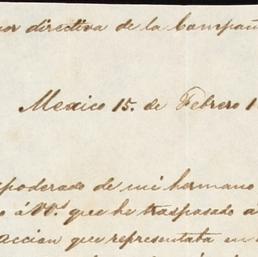 directiva de la Compañ
Mexico 15. de Febrero 1
apoderado de mi hermano
á VVs que he traspasado á
accion que representaba en